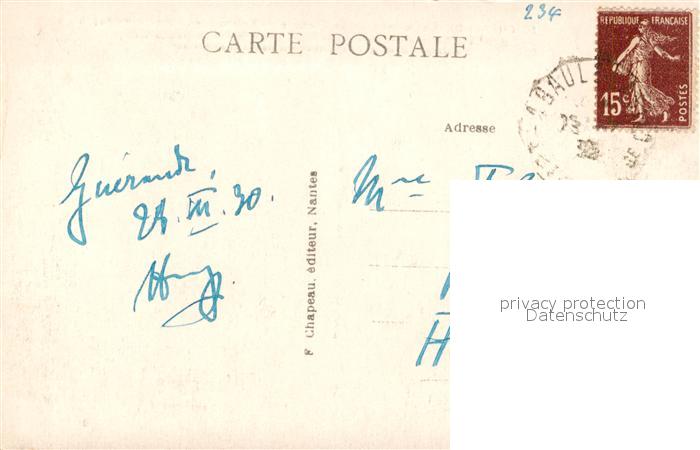 234
CARTE POSTALE
REPUBLIQUE FRANÇAISE
15c
POSTES
BAUL
Adresse
Guérande,
Mme
F. Chapeau, éditeur, Nantes
III. 30.
H
privacy protection
Datenschutz